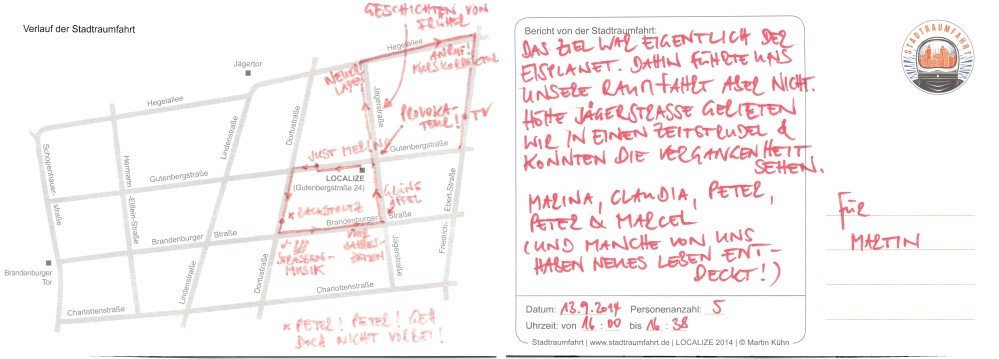 Verlauf der Stadtraumfahrt
GESCHICHTEN VON
FRÜHER
Hegelallee
ANRUF!
KURSKORREKTUR
NEUER
LADEN
Jägertor
Jägerstraße
PROVOKA-
TEUR!
TV
Hegelallee
Schopenhauer-
straße
Hermann
-Elflein-Straße
Lindenstraße
Dortustraße
JUST MERLIN
Gutenbergstraße
Gutenbergstraße
LOCALIZE
(Gutenbergstraße 24)
GRÜNE
* LACKSTOLTZ
Brandenburger
Brandenburger Straße
Straße
Friedrich-
Ebert-Straße
STRASSEN-
MUSIK
VIER
JAHRES-
ZEITEN
Brandenburger
Tor
Lindenstraße
Dortustraße
Jägerstr
Charlottenstraße
Charlottenstraße
* PETER! PETER! GEH
DOCH NICHT VORBEI!
Bericht von der Stadtraumfahrt:
DAS ZIEL WAR EIGENTLICH DER
EISPLANET. DAHIN FÜHRTE UNS
UNSERE RAUMFAHRT ABER NICHT.
HÖHE JÄGERSTRASSE GERIETEN
WIR IN EINEN ZEITSTRUDEL &
KONNTEN DIE VERGANGENHEIT
SEHEN.
MARINA, CLAUDIA, PETER,
PETER & MARCEL
(UND MANCHE VON UNS
HABEN NEUES LEBEN ENT-
DECKT!)
Datum: 13.9.2014 Personenanzahl: 5
Uhrzeit: von 16:00 bis 16:38
Stadtraumfahrt | www.stadtraumfahrt.de | LOCALIZE 2014 | © Martin Kühn
STADTRAUMFAHRT
FÜR
MARTIN